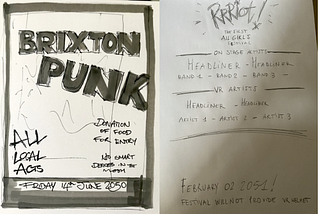 BRIXTON
PUNK
DONATION
OF FOOD
FOR ENTRY
ALL
LOCAL
ACTS
NO SMART
DEVICES IN THE
FRIDAY 14TH JUNE 2050
THE FIRST
ALL GIRLS
FESTIVAL
ON STAGE ARTISTS
HEADLINER - HEADLINER
BAND 1 - BAND 2 - BAND 3 -
VR ARTISTS
HEADLINER - HEADLINER
ARTIST 1 - ARTIST 2 - ARTIST 3
FEBRUARY 02 2051!
FESTIVAL WILL NOT PROVIDE VR